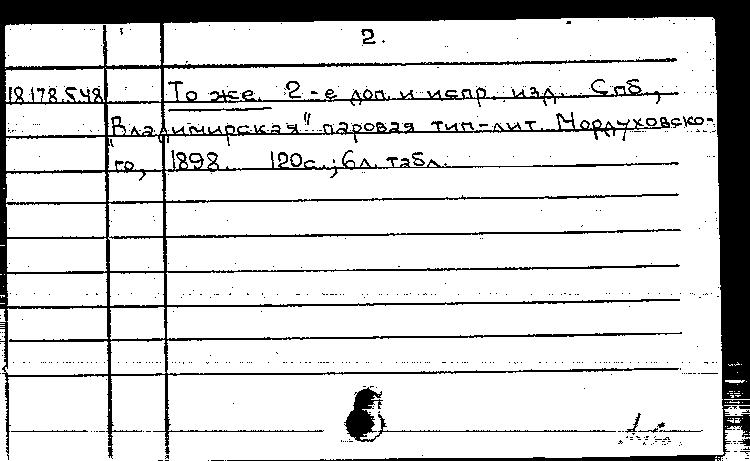 2.
18.178.548 То же. 2-е доп. и испр. изд. Спб.,
"Владимирская" паровая тип-лит. Мордуховско-
го, 1898. 120с.; 6л. табл.